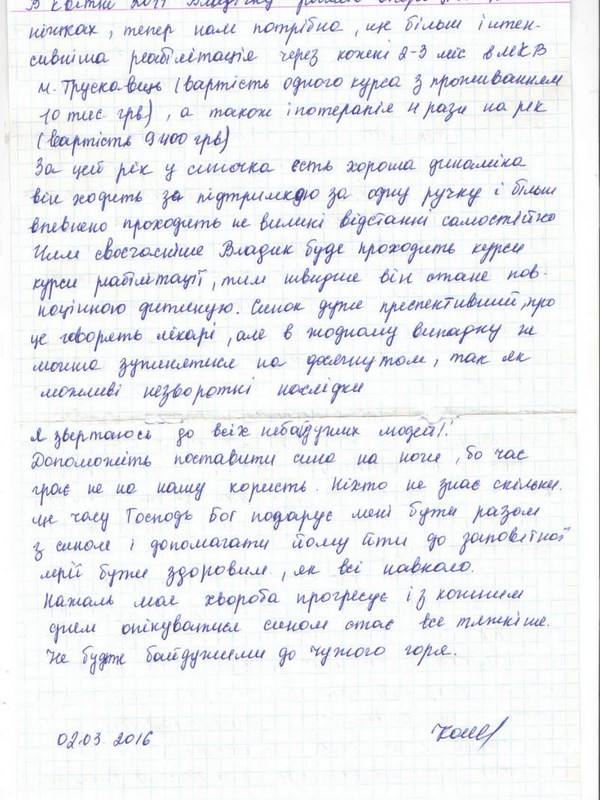 В квітні 2011 Владіку
ніжках, тепер нам потрібна, ще більш інтен-
сивніша реабілітація через кожні 2-3 міс в МКВ
м. Трускавець (вартість одного курса з проживанням
10 тис грв), а також іпотерапія 4 рази на рік
(вартість 9400 грв)
За цей рік у синочка єсть хороша динаміка
він ходить за підтримкою за одну ручку і більш
впевнено проходить не великі відстанні самостійно
Чим своєчасніше Владик буде проходить курси
курси реабілітації, тим швидше він стане пов-
ноцінною дитиною. Синок дуже преспективний, про
це говорять лікарі, але в жодному випадку не
можна зупинятися на досягнутом, так як
можливі незворотні наслідки
Я звертаюсь до всіх небайдужих людей!!
Допоможіть поставити сина на ноги, бо час
грає не на нашу користь. Ніхто не знає скільки
ще часу Господь Бог подарує мені бути разом
з сином і допомагати йому йти до заповетної
мрії бути здоровим, як всі навколо.
Нажаль моя хвороба прогресує і з кожним
днем опікуватися сином стає все тяжкіше.
Не будте байдужими до чужого горя.
02.03 2016